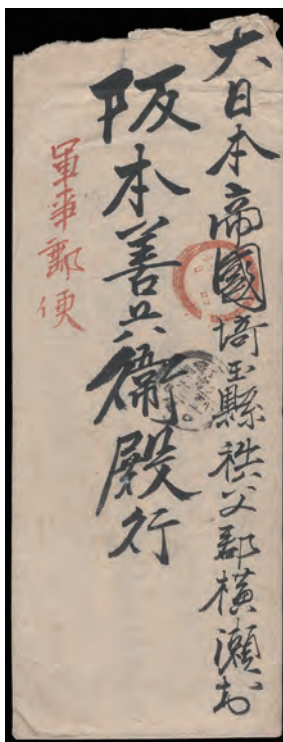 大日本帝國埼玉縣秩父郡横瀬村
阪本善兵衞殿行
軍事郵便